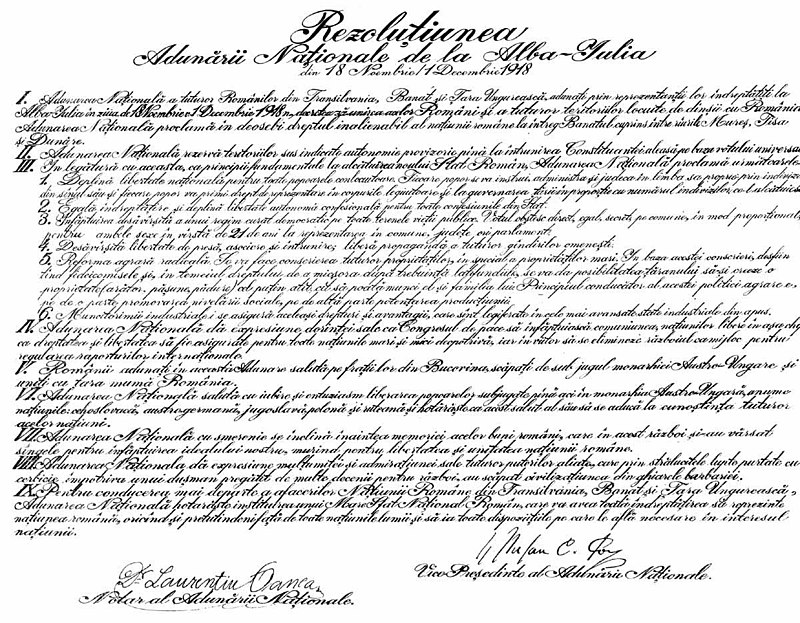 Rezoluțiunea
Adunării Naționale de la Alba-Iulia
din 18 Noembrie/1 Decembrie 1918
I. Adunarea Națională a tuturor Românilor din Transilvania, Banat și Țara Ungurească, adunați prin reprezentanții lor îndreptățiți la
Alba-Iulia în ziua de 18 Noembrie/1 Decembrie 1918, decretează unirea acelor Români și a tuturor teritoriilor locuite de dînșii cu România.
Adunarea Națională proclamă în deosebi dreptul inalienabil al națiunii române la întreg Banatul cuprins între rîurile Mureș, Tisa
și Dunăre.
II. Adunarea Națională rezervă teritoriilor sus indicate autonomie provizorie pînă la întrunirea Constituantei aleasă pe baza votului universal
III. În legătură cu aceasta, ca principii fundamentale la alcătuirea noului Stat Român, Adunarea Națională proclamă următoarele:
1. Deplină libertate națională pentru toate popoarele conlocuitoare. Fiecare popor se va instrui, administra și judeca în limba sa proprie prin indivizi
din sînul său și fiecare popor va primi drept de reprezentare în corpurile legiuitoare și la guvernarea țării în proporție cu numărul indivizilor ce-l alcătuiesc
2. Egală îndreptățire și deplină libertate autonomă confesională pentru toate confesiunile din Stat.
3. Înfăptuirea desăvîrșită a unui regim curat democratic pe toate terenele vieții publice. Votul obștesc, direct, egal, secret, pe comune, în mod proporțional,
pentru ambele sexe în vîrstă de 21 de ani la reprezentarea în comune, județe ori parlament.
4. Desăvîrșită libertate de presă, asociere și întrunire; liberă propagandă a tuturor gîndirilor omenești.
5. Reforma agrară radicală. Se va face conscrierea tuturor proprietăților, în special a proprietăților mari. În baza acestei conscrieri, desființ
țînd fideicomisele și, în temeiul dreptului de a micșora după trebuință latifundiile, se va da posibilitatea țăranului să-și creeze o
proprietate (arător, pășune, pădure) cel puțin atît, cît să poată munci el și familia lui. Principiul conducător al acestei politici agrare e
pe de o parte promovarea nivelării sociale, pe de altă parte potențarea producțiunii.
6. Muncitorimii industriale i se asigură aceleași drepturi și avantagii, care sînt legiferate în cele mai avansate state industriale din apus.
IV. Adunarea Națională dă expresiune dorinței sale ca Congresul de pace să înfăptuiască comuniunea națiunilor libere în așa chip
ca dreptatea și libertatea să fie asigurate pentru toate națiunile mari și mici deopotrivă, iar în viitor să se elimineze războiul ca mijloc pentru
regularea raporturilor internaționale.
V. Românii adunați în această Adunare salută pe frații lor din Bucovina, scăpați de sub jugul monarhiei Austro-Ungare și
uniți cu țara mumă România.
VI. Adunarea Națională salută cu iubire și entuziasm liberarea popoarelor subjugate pînă aci în monarhia Austro-Ungară, anume
națiunile: cehoslovacă, austrogermană, jugoslavă, polonă și ruteană și hotărăște ca acest salut al său să se aducă la cunoștința tuturor
acelor națiuni.
VII. Adunarea Națională cu smerenie se închină înaintea memoriei acelor bupi români, care în acest război și-au vărsat
sîngele pentru înfăptuirea idealului nostru, murind pentru libertatea și unitatea națiunii române.
VIII. Adunarea Națională dă expresiune mulțumitei și admirațiunei sale tuturor puterilor aliate, care prin strălucitele lupte purtate cu
cerbicie împotriva unui dușman pregătit de multe decenii pentru război, au scăpat civilizațiunea din ghiarele barbariei.
IX. Pentru conducerea mai departe a afacerilor Națiunii Române din Transilvania, Banat și Țara Ungurească,
Adunarea Națională hotărăște instituirea unui Mare Sfat Național Român, care va avea toată îndreptățirea să reprezinte
națiunea română, oricînd și pretutindeni față de toate națiunile lumii și să ia toate dispozițiile pe care le află necesare în interesul
națiunii.
Dr Laurențiu Oancea
Notar al Adunării Naționale.
Ștefan C. Pop
Vice Președinte al Adunării Naționale.